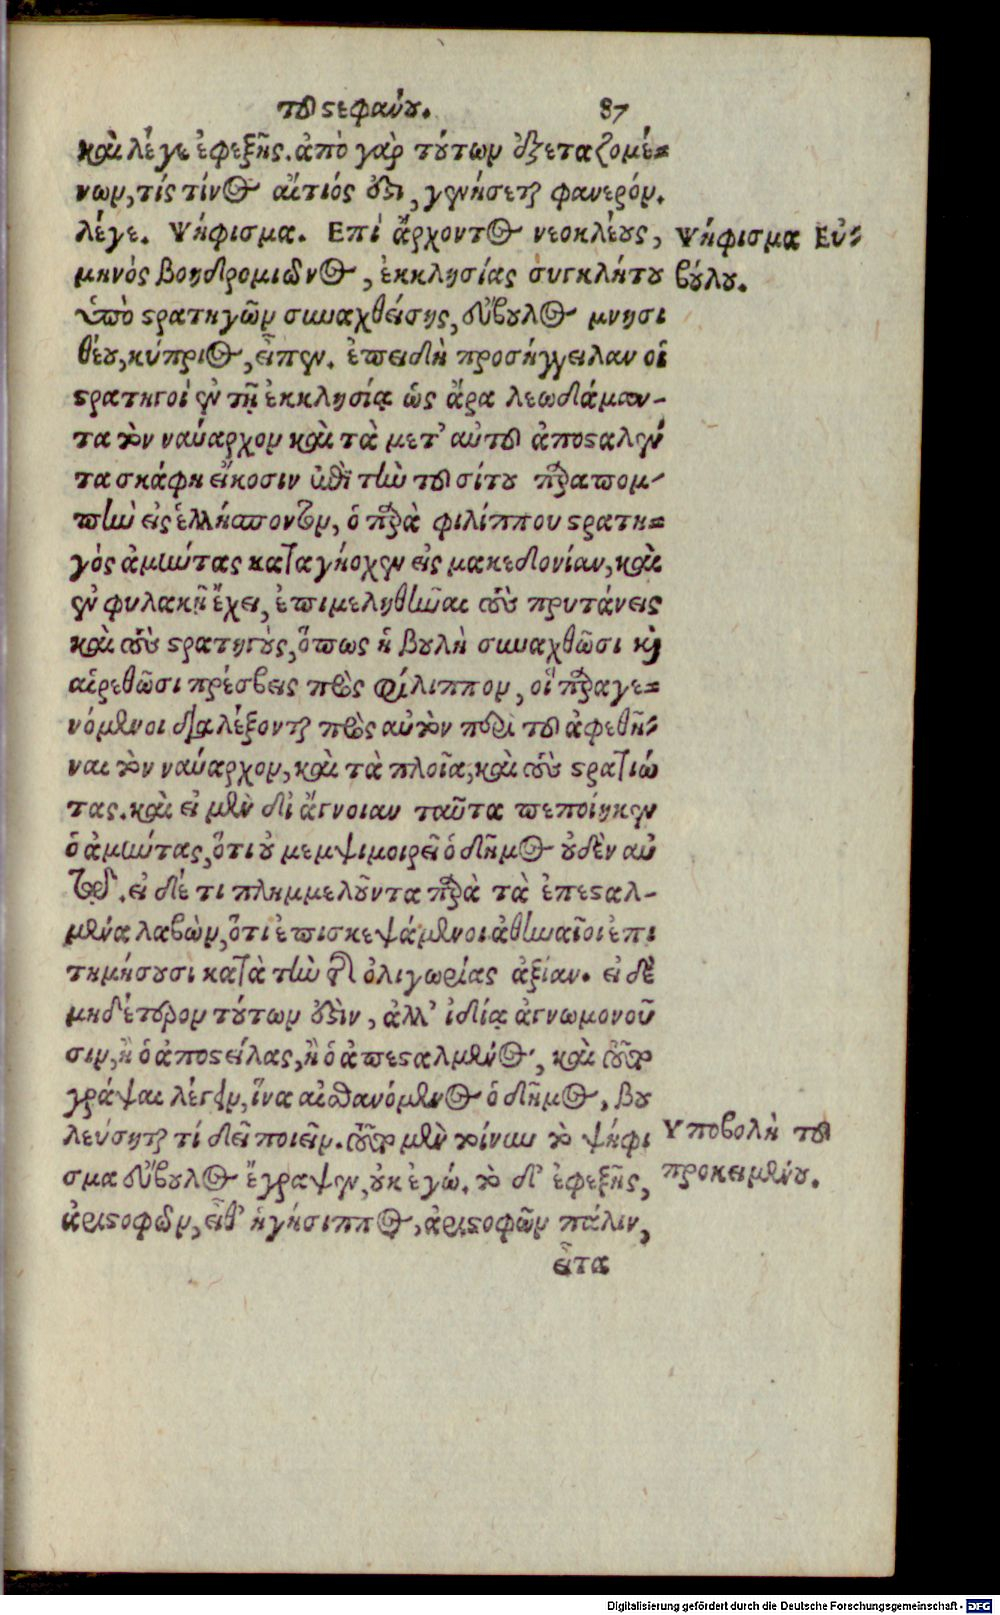 τοῦ στεφάνου. 87
καὶ λέγε ἐφεξῆς. ἀπὸ γὰρ τούτων ἐξεταζομέ=
νων, τίς τίνος αἴτιός ἐστι, γενήσεται φανερόν.
λέγε. Ψήφισμα. Επὶ ἄρχοντος νεοκλέους,
Ψήφισμα Εὐ=
μηνὸς βοηδρομιῶνος, ἐκκλησίας συγκλήτου
βούλου.
ὑπὸ στρατηγῶν συναχθείσης, εὔβουλος μνησι
θέου, κύπριος, εἶπεν. ἐπειδὴ προσήγγειλαν οἱ
στρατηγοὶ ἐν τῇ ἐκκλησίᾳ ὡς ἄρα λεωδάμαν-
τα τὸν ναύαρχον καὶ τὰ μετ' αὐτοῦ ἀποσταλέν
τα σκάφη εἴκοσιν ἐπὶ τὴν τοῦ σίτου παραπομ-
πὴν εἰς ἑλλήσποντον, ὁ παρὰ φιλίππου στρατη=
γὸς ἀμύντας καταγήοχεν εἰς μακεδονίαν, καὶ
ἐν φυλακῇ ἔχει, ἐπιμεληθῆναι τοὺς πρυτάνεις
καὶ τοὺς στρατηγοὺς, ὅπως ἡ βουλὴ συναχθῶσι καὶ
αἱρεθῶσι πρέσβεις πρὸς φίλιππον, οἳ παραγε=
νόμενοι διαλέξονται πρὸς αὐτὸν περὶ τοῦ ἀφεθῆ=
ναι τὸν ναύαρχον, καὶ τὰ πλοῖα, καὶ τοὺς στρατιώ
τας. καὶ εἰ μὲν δι' ἄγνοιαν ταῦτα πεποίηκεν
ὁ ἀμύντας, ὅτι οὐ μεμψιμοιρεῖ ὁ δῆμος οὐδὲν αὐ
τῷ. εἰ δέ τι πλημμελοῦντα παρὰ τὰ ἐπεσταλ-
μένα λαβὼν, ὅτι ἐπισκεψάμενοι ἀθηναῖοι ἐπι
τημήσουσι κατὰ τὴν τῆς ὀλιγωρίας ἀξίαν. εἰ δὲ
μηδέτερον τούτων ἐστὶν, ἀλλ' ἰδίᾳ ἀγνωμονοῦ
σιν, ἢ ὁ ἀποστείλας, ἢ ὁ ἀπεσταλμένος, καὶ τοῦτο
γράψαι λέγειν, ἵνα αἰσθανόμενος ὁ δῆμος, βου
λεύσηται τί δεῖ ποιεῖν. τοῦτο μὲν τοίνυν τὸ ψήφι
Υποβολὴ τοῦ
σμα εὔβουλος ἔγραψεν, οὐκ ἐγώ. τὸ δ' ἐφεξῆς,
προκειμένου.
ἀριστοφῶν, εἶθ' ἡγήσιππος, ἀριστοφῶν πάλιν,
εἶτα
Digitalisierung gefördert durch die Deutsche Forschungsgemeinschaft - DFG